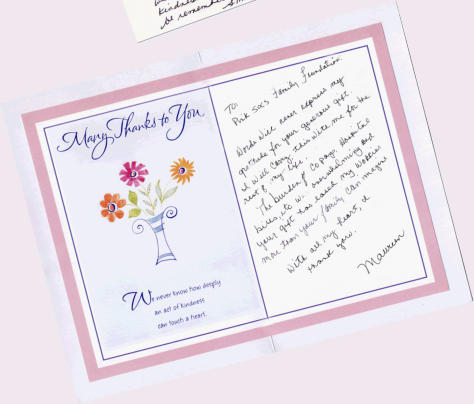 kindness
be remember
Many Thanks to You
We never know how deeply
an act of kindness
can touch a heart.
To:
Pink Socs Family Foundation.
Words will never express my
gratitude for your generous gift.
I will carry this with me for the
rest of my life.
The burden of co pays, Hospital
bills, etc is overwhelming and
your gift has eased my worries
more than your family can imagine
With all my heart, I
thank you.
Maureen